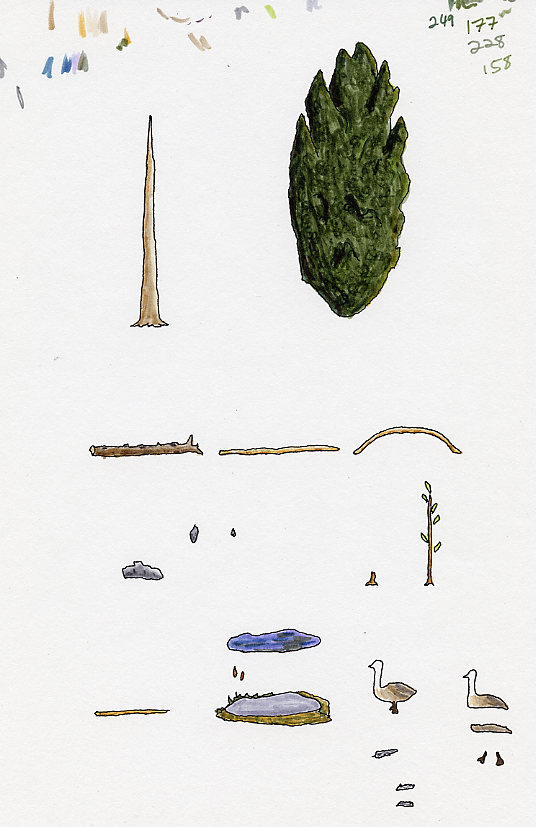 249 177
228
158